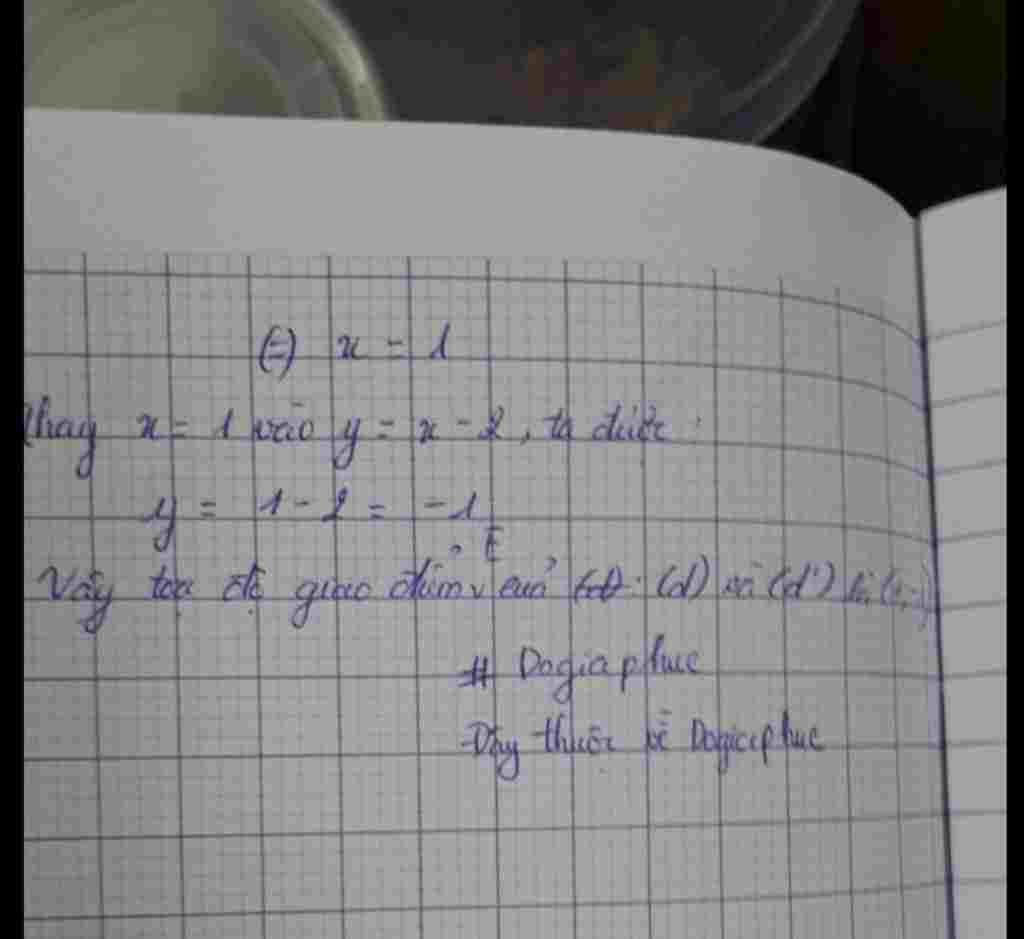 (=) x = 1
Thay x = 1 vào y = x - 2, ta được:
y = 1 - 2 = - 1
Vậy toạ độ giao điểm E của (d) và (d') là (1;-1)
# Dogiaphuc
Đây thuộc về Dogiaphuc